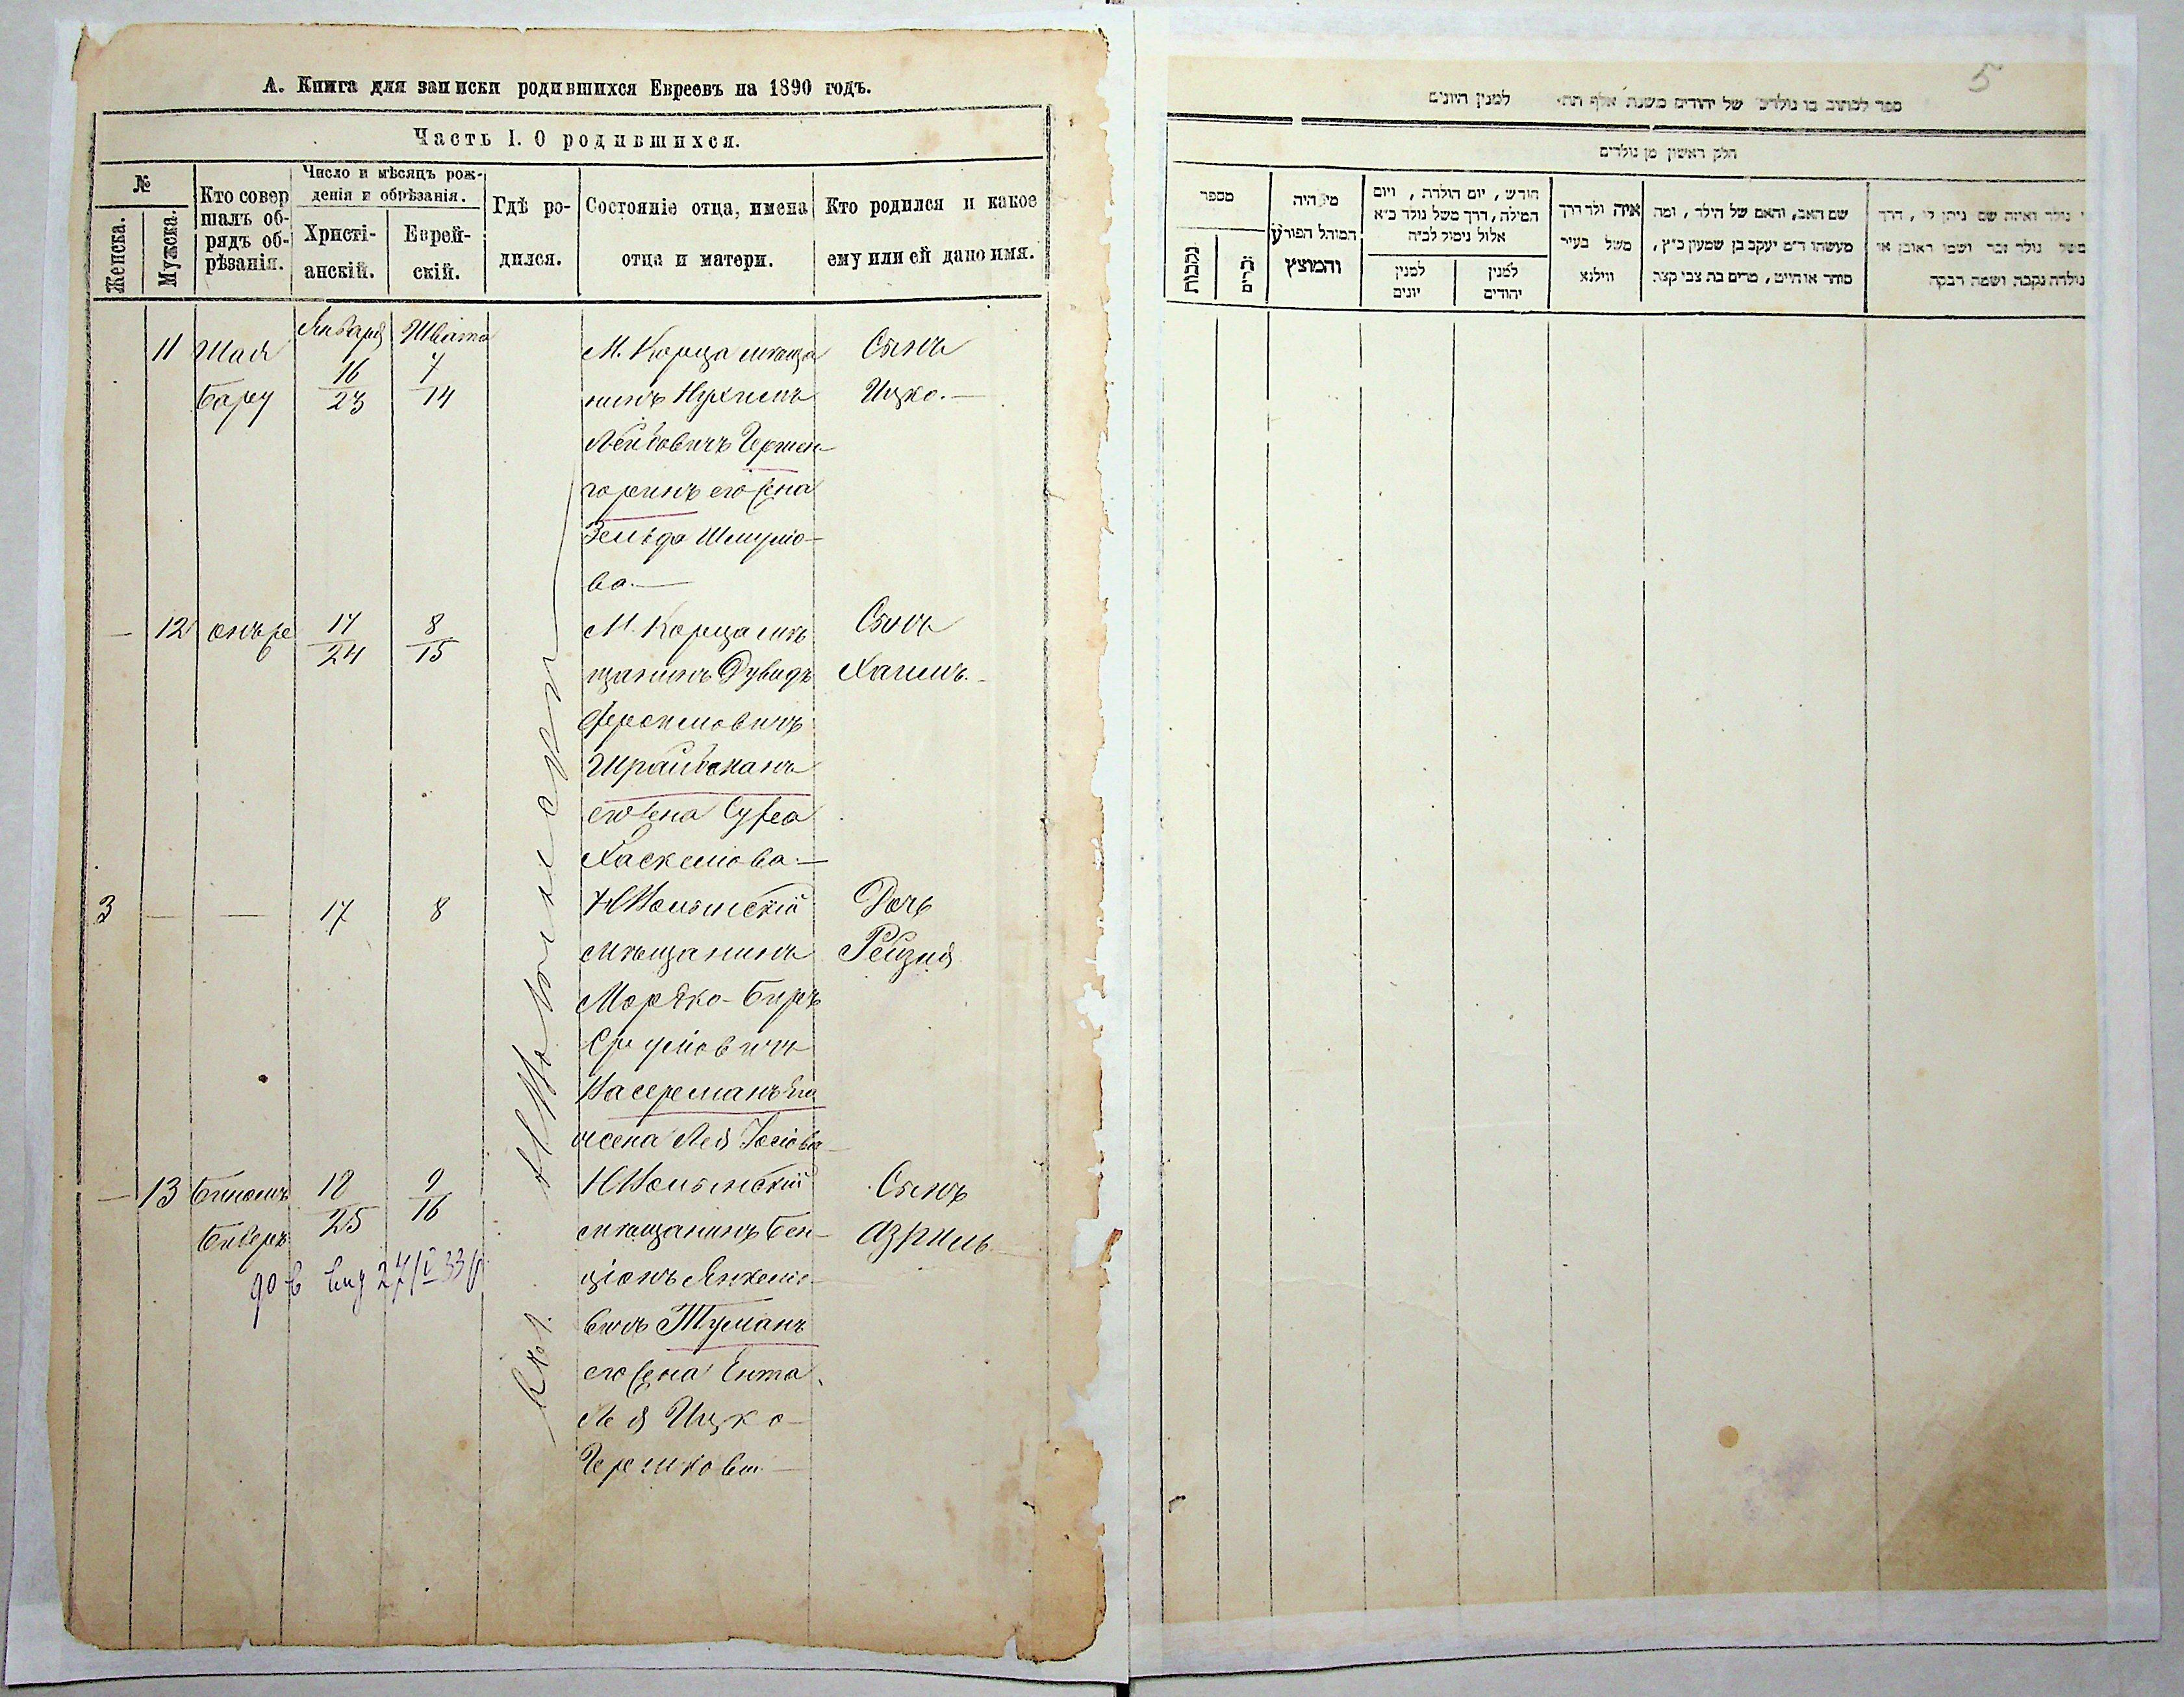 А. Книга для записки родившихся Евреевъ на 1890 годъ.
Часть I. О родившихся.
№
Женска.
Мужска.
Кто совер
шалъ об-
рядъ об-
рѣзанія.
Число и мѣсяцъ рож-
денія и обрѣзанія.
Христі-
анскій.
Еврей-
скій.
Гдѣ ро-
дился.
Состояніе отца, имена
отца и матери.
Кто родился и какое
ему или ей дано имя.
11
Шая
Бару
Января
16
23
Швата
7
14
М. Корца мѣща
нинъ Нухимъ
Лейбовичъ Гершен-
горинъ его жена
Зельда Шмулио-
ва.—
Сынъ
Ицко.—
—
12
онъ же
17
24
8
15
М. Корца мѣ
щанинъ Дувидъ
Фроимовичъ
Шрайбманъ
его жена Сура
Хаскелиова.—
Сынъ
Хаимъ.—
3
—
—
17
8
НВолынскій
мѣщанинъ
Мордко-Беръ
Сруліовичъ
Васерманъ его
жена Лея Іосіова
Дочь
Рейзия
—
13
Биномъ
Биберъ
18
25
9
16
НВолынскій
мѣщанинъ Бен-
ціонъ Янкеліо-
вичъ Туманъ
его жена Ента
Лея Ицко-
Гершкова—
Сынъ
Азриль
27/V 33
5
ספר לכתוב בו נולדים של יהודים משנת אלף תת׳ למנין היונים
חלק ראשון מן נולדים
מספר
נקבות
זכרים
מי היה
המוהל הפורע
והמוצץ
חודש, יום הולדת, ויום
המילה, דרך משל נולד כ״א
אלול נימול לכ״ה
למנין
יונים
למנין
יהודים
איה ולד דרך
משל בעיר
ווילנא
שם האב, והאם של הילד, ומה
מעשהו ד״מ יעקב בן שמעון כ״ץ,
סוחר או חייט, מרים בת צבי קצב
נולד ואיזה שם ניתן לו, דרך
משל נולד זכר ושמו ראובן או
נולדה נקבה ושמה רבקה